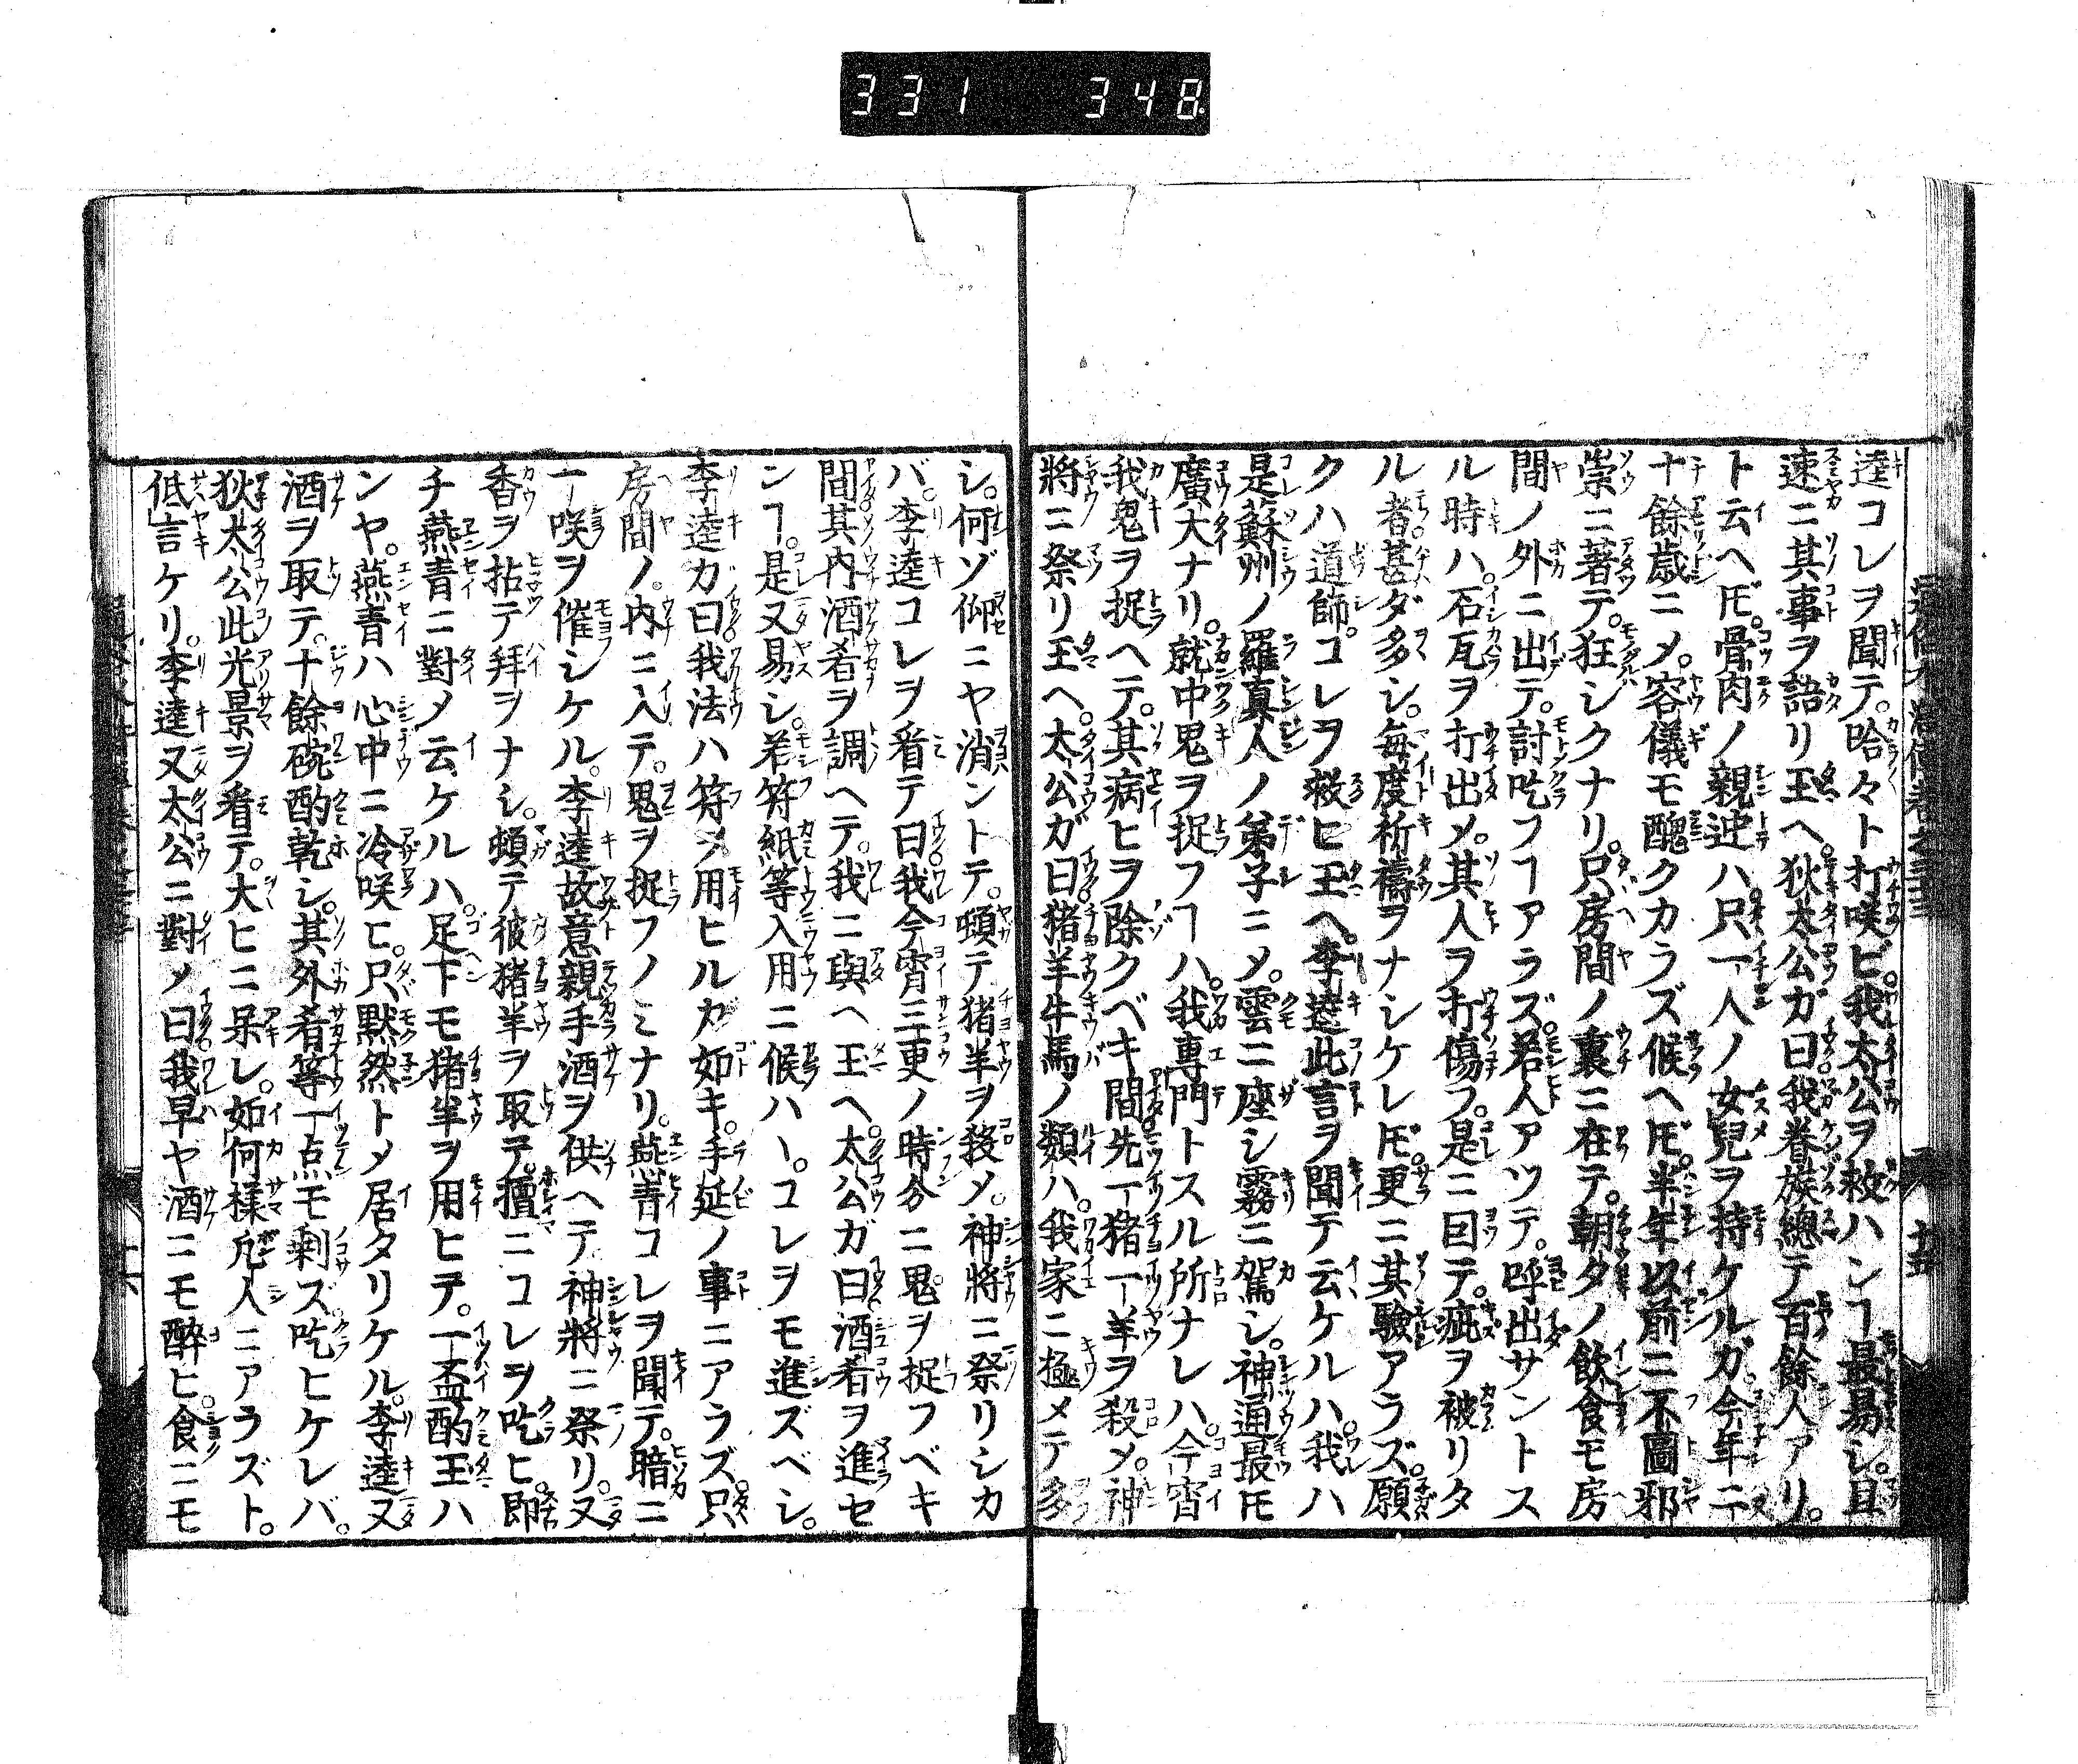 331 348
逵コレヲ聞テ。哈々ト打咲ヒ。我太公ヲ救ハンヿ最易シ。且
速ニ其事ヲ語リ玉ヘ。狄太公ガ曰我眷族總テ百餘人アリ。
ト云ヘ𪜈。骨肉ノ親迚ハ只一人ノ女兒ヲ持ケルガ。今年二
十餘歳ニメ。容儀モ醜クカラズ候ヘ𪜈。半年以前ニ不圖邪
祟ニ著テ。狂シクナリ。只房間ノ裏ニ在テ。朝夕ノ飲食モ房
間ノ外ニ出テ。討吃フヿアラズ。若人アツテ。呼出サントス
ル時ハ。石瓦ヲ打出メ。其人ヲ打傷フ。是ニ因テ。疵ヲ被リタ
ル者甚ダ多シ。毎度祈禱ヲナシケレ𪜈。更ニ其驗アラズ。願
クハ道師。コレヲ救ヒ玉ヘ。李逵此言ヲ聞テ云ケルハ。我ハ
是蘇州ノ羅真人ノ弟子ニメ。雲ニ座シ霧ニ駕シ。神通最𪜈
廣大ナリ。就中鬼ヲ捉フヿハ。我專門トスル所ナレハ。今宵
我鬼ヲ捉ヘテ。其病ヒヲ除クベキ間。先一猪一羊ヲ殺メ。神
將ニ祭リ玉ヘ。太公ガ曰猪羊牛馬ノ類ハ。我家ニ極メテ多
シ。何ゾ仰ニヤ消ントテ。頓テ猪羊ヲ殺メ。神將ニ祭リシカ
バ。李逵コレヲ看テ曰我今宵三更ノ時分ニ鬼ヲ捉フベキ
間其内酒肴ヲ調ヘテ。我ニ與ヘ玉ヘ。太公ガ曰酒肴ヲ進セ
ンヿ。是又易シ。若符紙等入用ニ候ハヽ。コレヲモ進ズベシ。
李逵カ曰我法ハ符ヲ用ヒルカ如キ。手延ノ事ニアラズ。只
房間ノ。内ニ入テ。鬼ヲ捉フノミナリ。燕青コレヲ聞テ。暗ニ
一咲ヲ催シケル。李逵故意親手酒ヲ供ヘテ神將ニ祭リ。又
香ヲ拈テ拜ヲナシ。頓テ彼猪羊ヲ取テ。擅ニコレヲ吃ヒ。即
チ燕青ニ對メ云ケルハ。足下モ猪羊ヲ用ヒテ。一盃酌玉ハ
ンヤ。燕青ハ心中ニ冷咲ヒ。只默然トメ居タリケル。李逵又
酒ヲ取テ。十餘碗酌乾シ。其外肴等一点モ剩ズ。吃ヒケレバ。
狄太公此光景ヲ看テ。大ヒニ呆レ。如何樣凡人ニアラズト。
低言ケリ。李逵又太公ニ對メ曰我早ヤ酒ニモ醉ヒ。食ニモ